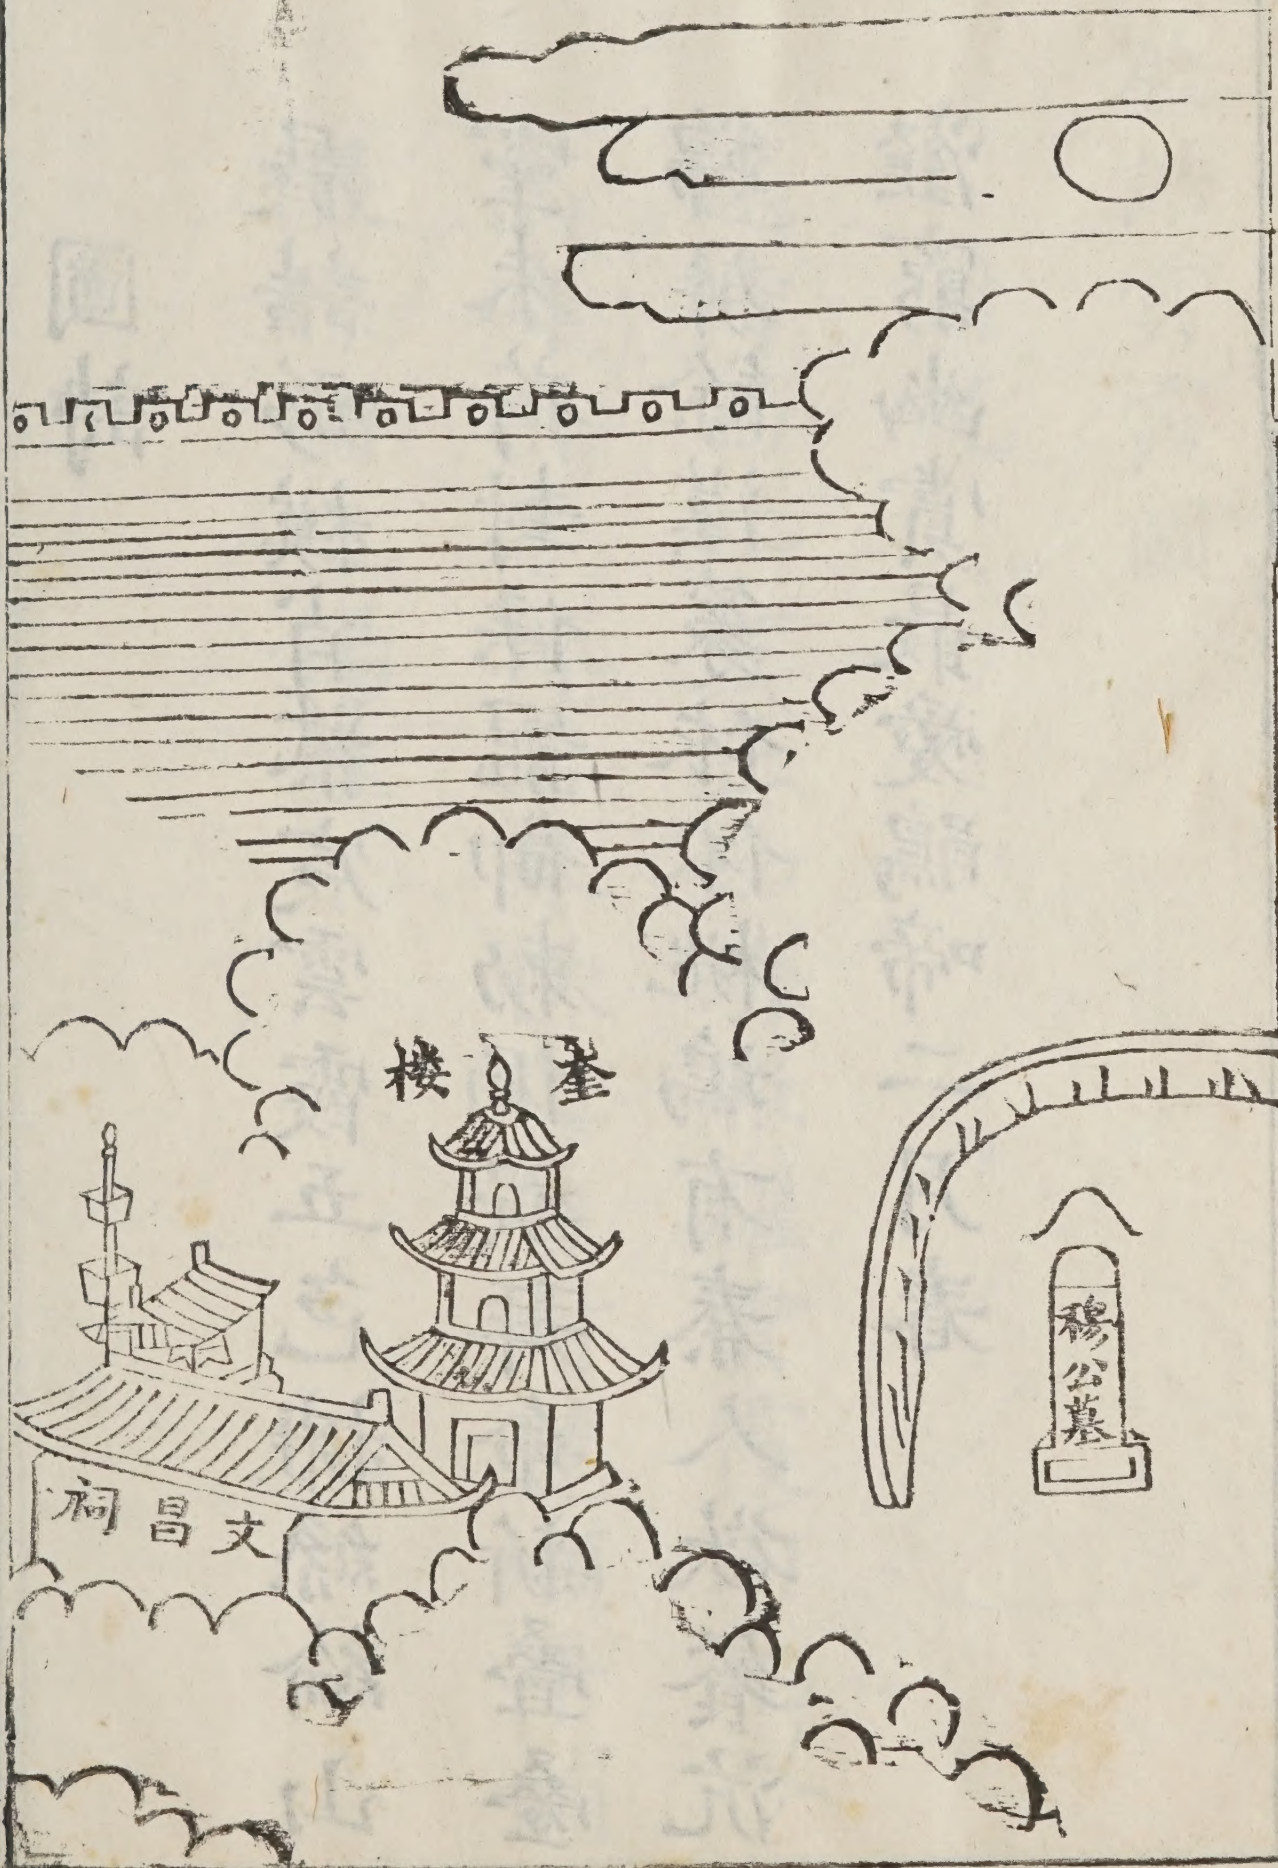 奎楼
穆公墓
文昌祠